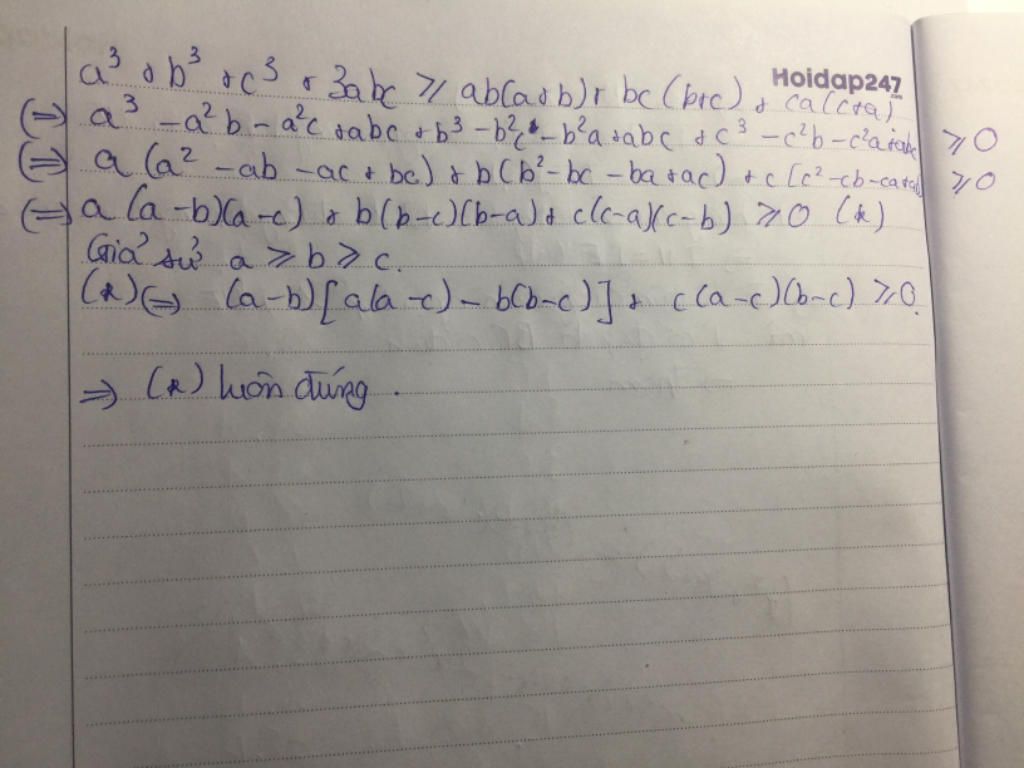 Hoidap247
a³ + b³ + c³ + 3abc ≥ ab(a+b) + bc(b+c) + ca(c+a)
(=) a³ - a²b - a²c + abc + b³ - b²c - b²a + abc + c³ - c²b - c²a + abc ≥ 0
(=) a(a² - ab - ac + bc) + b(b² - bc - ba + ac) + c(c² - cb - ca + ab) ≥ 0
(=) a(a-b)(a-c) + b(b-c)(b-a) + c(c-a)(c-b) ≥ 0 (*)
Giả sử a ≥ b ≥ c.
(*) (=) (a-b)[a(a-c) - b(b-c)] + c(a-c)(b-c) ≥ 0.
=> (*) luôn đúng.